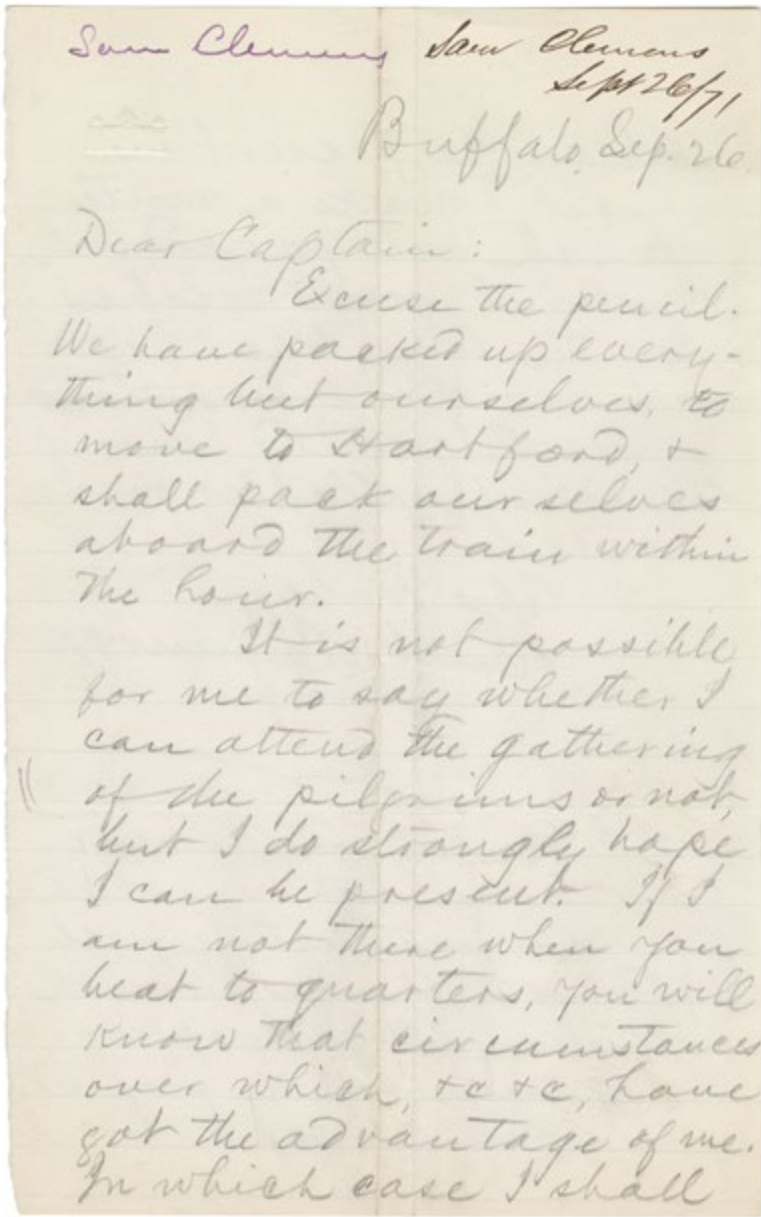 Sam Clemens Sam Clemens
Sept 26/71
Buffalo, Sep. 26.
Dear Captain:
Excuse the pencil.
We have packed up every-
thing but ourselves, to
move to Hartford, &
shall pack ourselves
aboard the train within
the hour.
It is not possible
for me to say whether I
can attend the gathering
of the pilgrims or not,
but I do strongly hope
I can be present. If I
am not there when you
beat to quarters, you will
know that circumstances
over which, &c &c, have
got the advantage of me.
In which case I shall